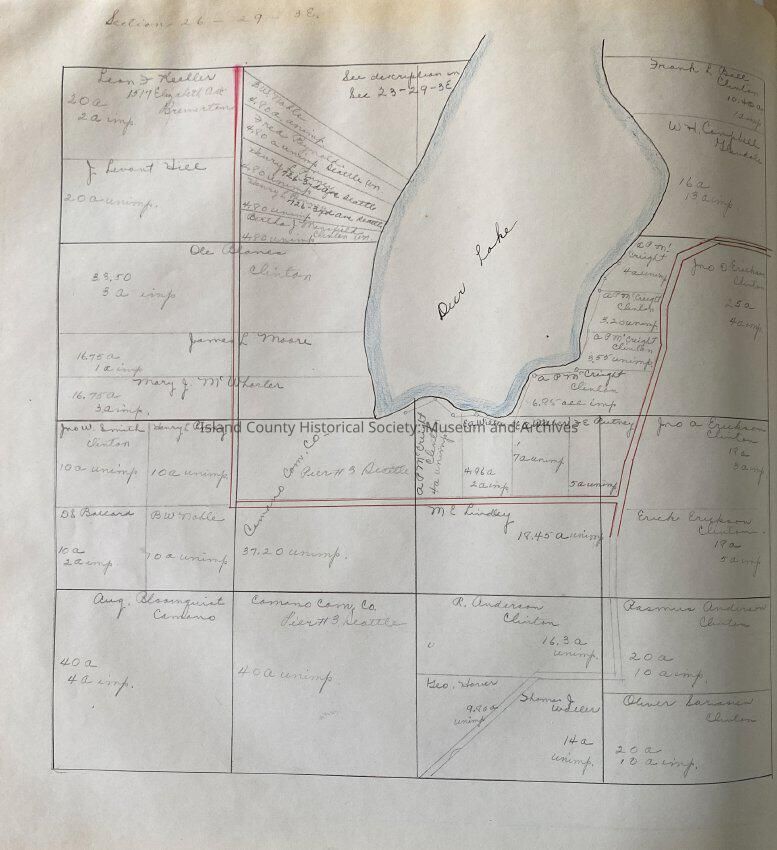 Section 26 - 29 - 3E.
Leon F Keeller
1517 Elizabeth Ave
Bremerton
20 a
2 a imp
J. Levant Hill
20 a unimp.
B W Noble
4.80 a. unimp.
Fred
4.80 a unimp Seattle Wn
Henry
726-3rd ave Seattle
4.80 unimp
Henry
726-3rd ave Seattle
4.80 unimp
Bertha J.
Clinton Wn.
4.80 unimp
See description in
Sec 23-29-3E
Deer Lake
Frank L Bell
Clinton
10.40 a
W H. Campbell
Glendale
16 a
13 a imp
Ole
Clinton
33.50
3 a imp
James L Moore
16.75 a
1 a imp
Mary J. McWhorter
16.75 a
3 a imp.
A P McCreight
4 a unimp
A P McCreight
Clinton
3.20 unimp
A P McCreight
Clinton
3.55 unimp
A P McCreight
Clinton
6.95 all imp
Jno O Erickson
Clinton
25 a
4 a imp
Jno W. Smith
Clinton
10 a unimp
Henry L
10 a unimp.
Camano Com. Co.
Pier #3 Seattle
37.20 unimp.
A P McCreight
Clinton
4 a unimp
4.96 a
2 a imp
7 a unimp
F E Putney
5 a unimp
Jno A Erickson
Clinton
19 a
3 a imp
Island County Historical Society, Museum and Archives
D S Ballard
10 a
2 a imp.
B W Noble
10 a unimp
M E Lindley
18.45 a unimp
Erick Erickson
Clinton.
19 a
5 a imp
Aug. Bloomquist
Camano
40 a
4 a imp.
Camano Com, Co
Pier #3 Seattle
40 a unimp.
R. Anderson
Clinton
16.3 a
unimp.
Rasmus Anderson
Clinton
20 a
10 a imp.
Geo. Hover
9.80 a
unimp
Thomas J
Waller
14 a
unimp.
Oliver Larasen
Clinton
20 a
10 a imp.